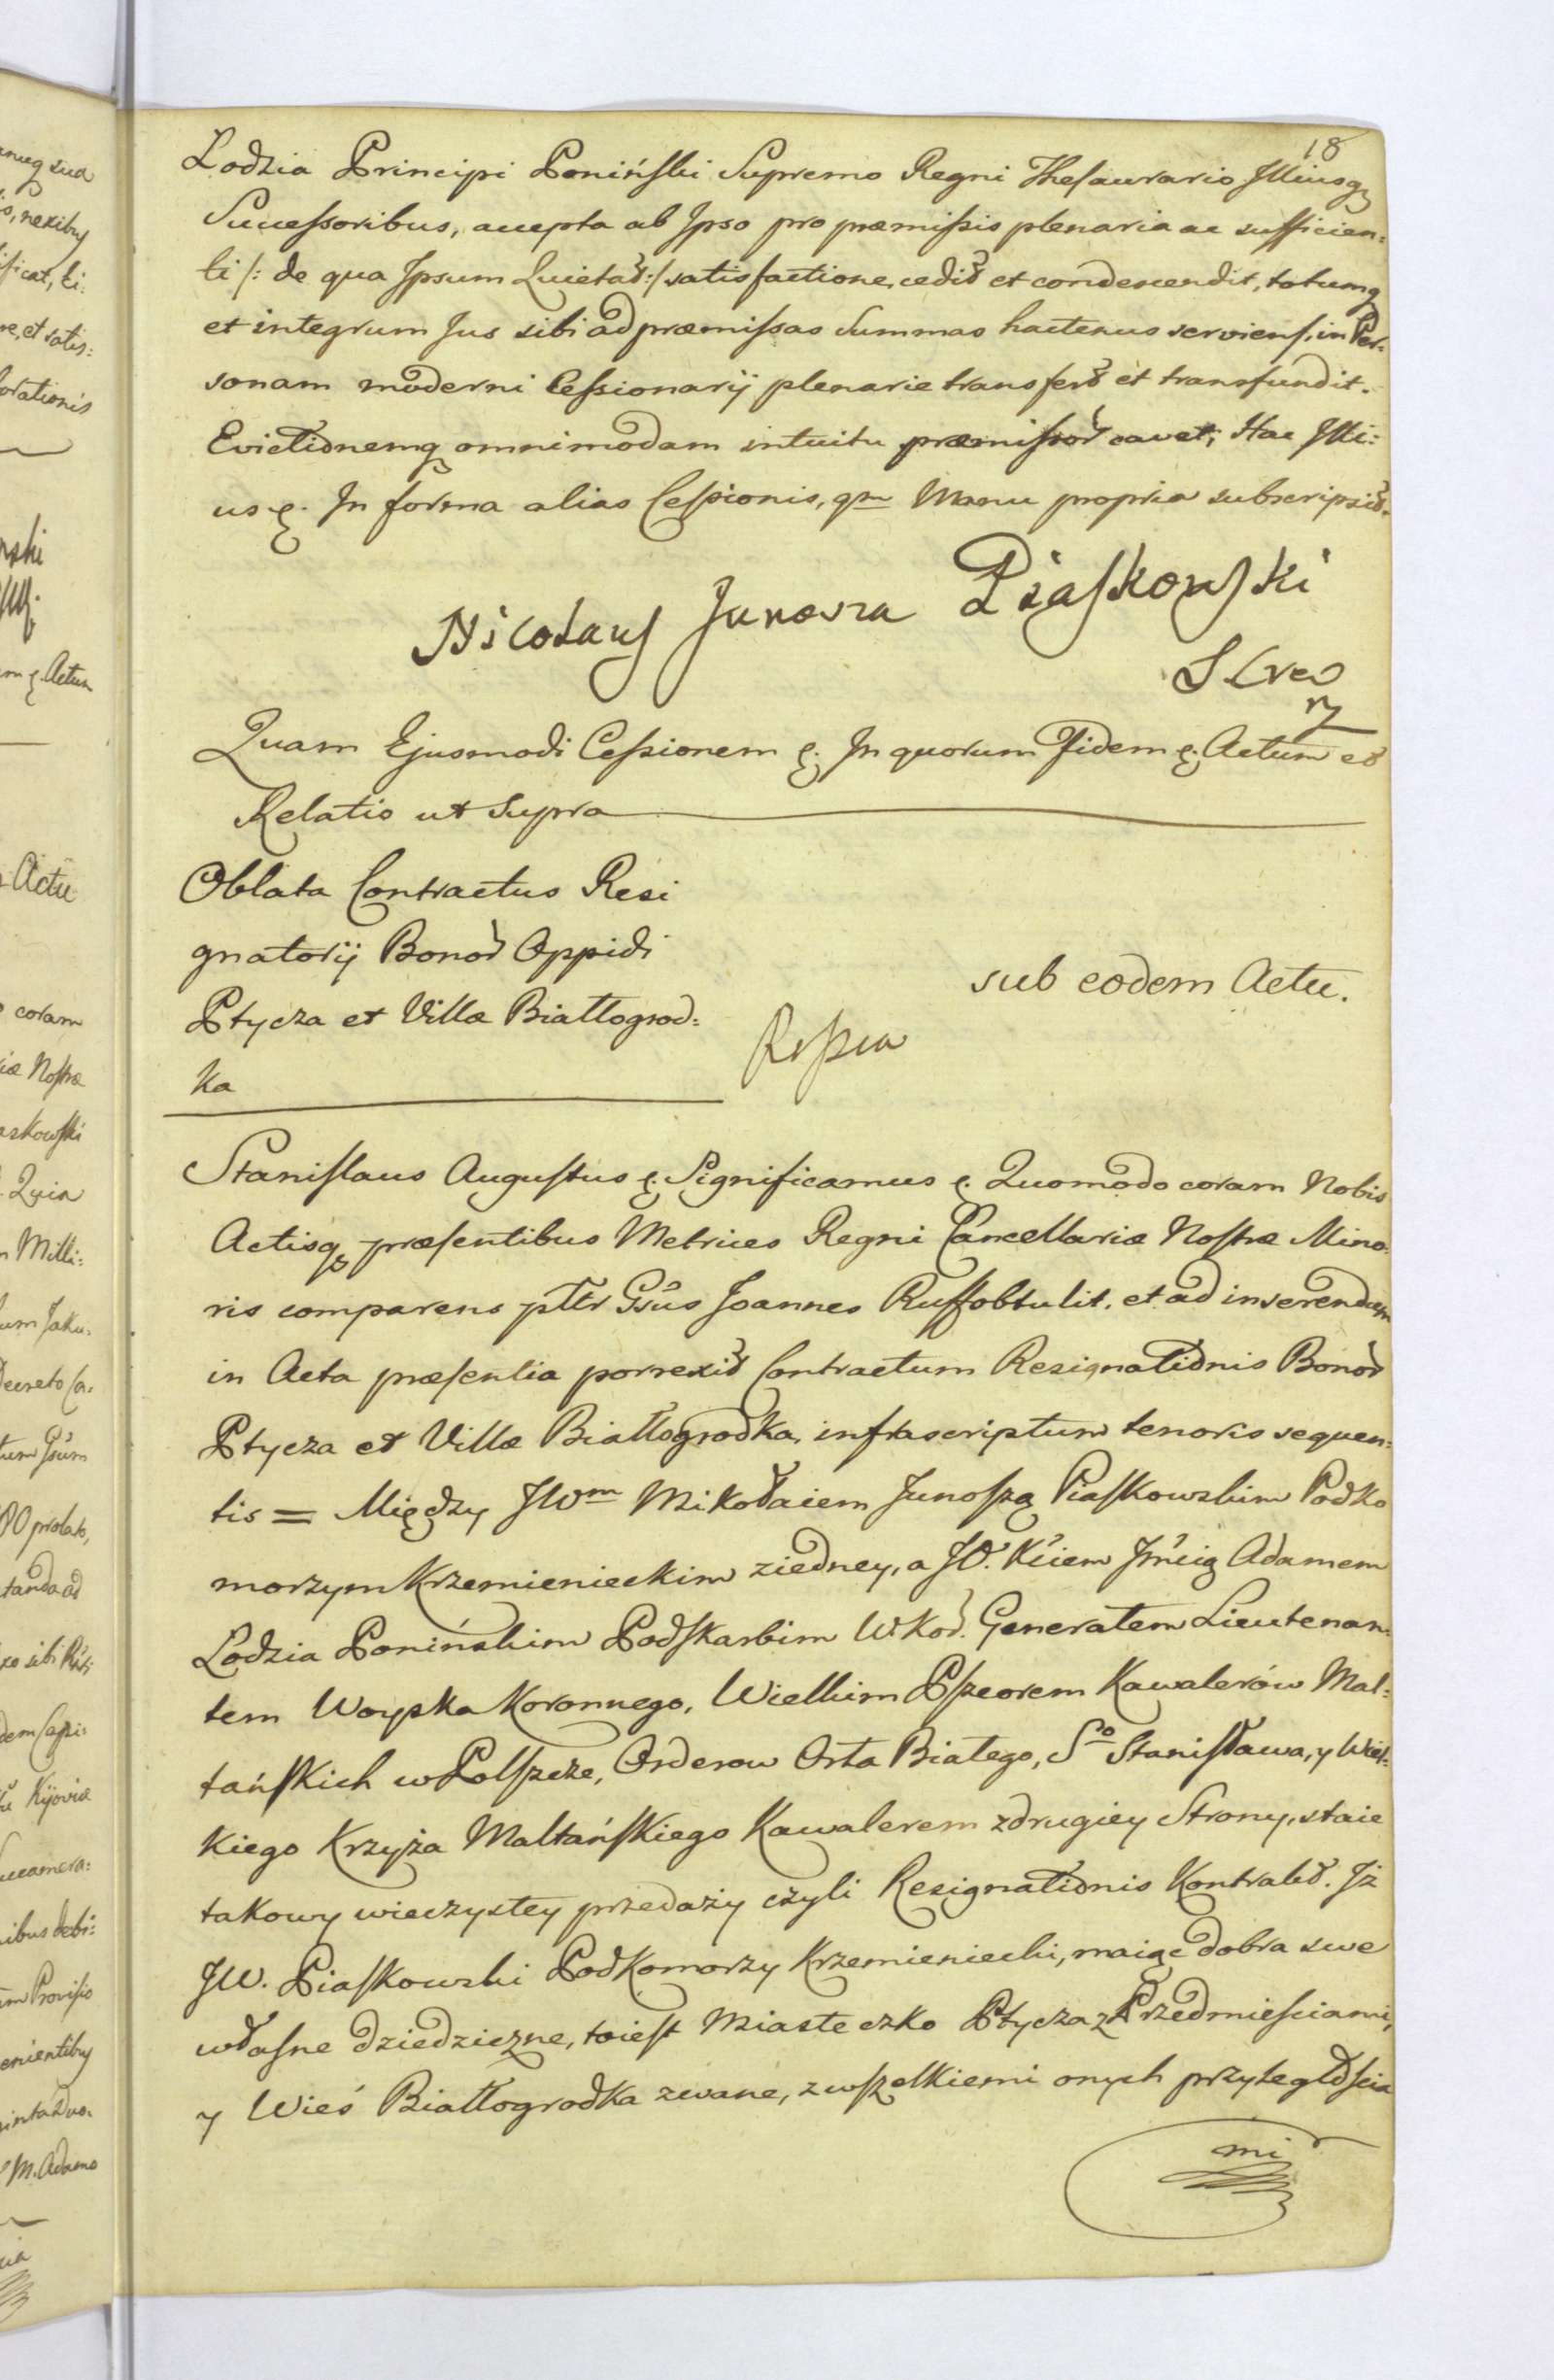 18
Lodzia Principi Poniński Supremo Regni Thesaurario Illiusq
Successoribus, accepta ab Ipso pro præmissis plenaria ac sufficien:
ti /: de qua Ipsum Quietat :/ satisfactione, cedit et condescendit, totumq
et integrum Jus sibi ad præmissas Summas hactenus serviens, in Per:
sonam moderni Cessionarij plenarie transfert et transfundit.
Evictionemq omnimodam intuitu præmissor cavet, Hac Illi:
us &. In forma alias Cessionis, qm Manu propria subscripsit.
Nicolaus Junosza Piaskowski
Quam Ejusmodi Cessionem &. In quorum Fidem &. Actum et
Relatio ut Supra
Oblata Contractus Resi
gnatorij Bonor Oppidi
Ptycza et Villæ Białłogrod:
ka
sub eodem Actu.
Stanislaus Augustus &. Significamus &. Quomodo coram Nobis
Actisq præsentibus Metrices Regni Cancellariæ Nostræ Mino:
ris comparens pltr Gsus Joannes Ruff obtulit, et ad inserendum
in Acta præsentia porrexit Contractum Resignationis Bonor
Ptycza et Villæ Białłogrodka, infrascriptum tenoris sequen:
tis = Między JWm Mikołaiem Junoszą Piaskowskim Podko
morzym Krzemienieckim z iedney, a JO. Xciem Jmcią Adamem
Lodzia Ponińskim Podskarbim W. Kor. Generałem Lieutenan:
tem Woyska Koronnego, Wielkim Przeorem Kawalerów Mal:
tańskich w Polszcze, Orderow Orła Białego, So Stanisława, y Wiel:
kiego Krzyża Maltańskiego Kawalerem z drugiey Strony, staie
takowy wieczystey przedaży czyli Resignationis Kontrakt. Iż
JW. Piaskowski Podkomorzy Krzemieniecki, maiąc dobra swe
własne dziedziczne, to iest Miasteczko Ptycza z Przedmieściami,
y Wieś Białłogrodka zwane, z wszelkiemi onych przyległościa
mi